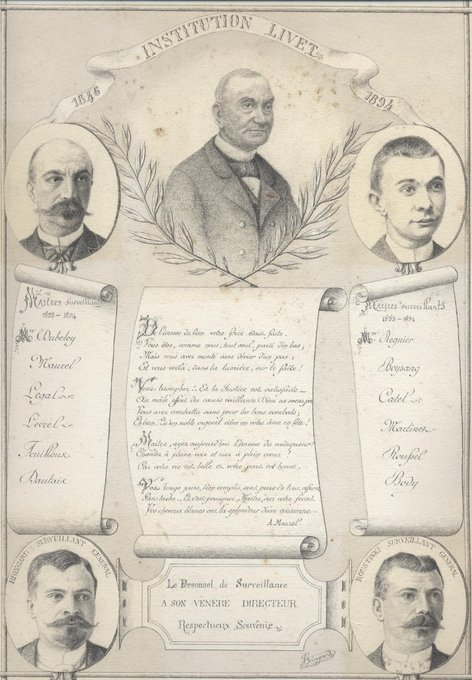 INSTITUTION LIVET
1846
1894
Maîtres surveillants
1893-1894
Mrs Dubeloy
Maurel
Legal
Level
Fouilloux
Dautais
De l'ivresse du bien votre force était faite.
Vous êtes, comme nous, tout seul, parti d'en bas;
Mais vous avez monté sans dévier d'un pas;
Et vous voilà, dans la lumière, sur le faîte!
Vous triomphez!.. Et la Justice est satisfaite
Au mâle effort des cœurs vaillants
Vous avez combattu sans peur les bons combats,
qu'un noble orgueil vibre en votre âme en fête!
Maître, ayez aujourd'hui l'ivresse du vainqueur!
Chantez à pleine voix et riez à plein cœur!
Car votre vie est belle et votre part est bonne,
Vos longs jours, bien remplis, sont purs de tout
Et c'est pourquoi, Maître, sur votre front
Vos cheveux blancs ont la splendeur d'une couronne.
A. Maurel
Maîtres surveillants
1893-1894
Mrs Regnier
Beysang
Catel
Martinet
Roussel
Body
SURVEILLANT GÉNÉRAL
SURVEILLANT GÉNÉRAL
Le Personnel de Surveillance
A SON VÉNÉRÉ DIRECTEUR
Respectueux Souvenir